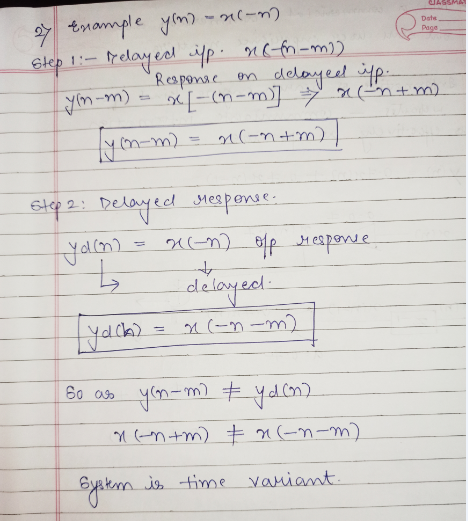 CLASSMAT
Date
Page
2) Example y(n) = x(-n)
Step 1:- Delayed i/p. x(-(n-m))
Response on delayed i/p.
y(n-m) = x[-(n-m)] ⇒ x(-n+m)
y(n-m) = x(-n+m)
Step 2: Delayed response.
yd(n) = x(-n) o/p response
↳ ↓
delayed.
yd(n) = x(-n-m)
So as y(n-m) ≠ yd(n)
x(-n+m) ≠ x(-n-m)
System is time variant.